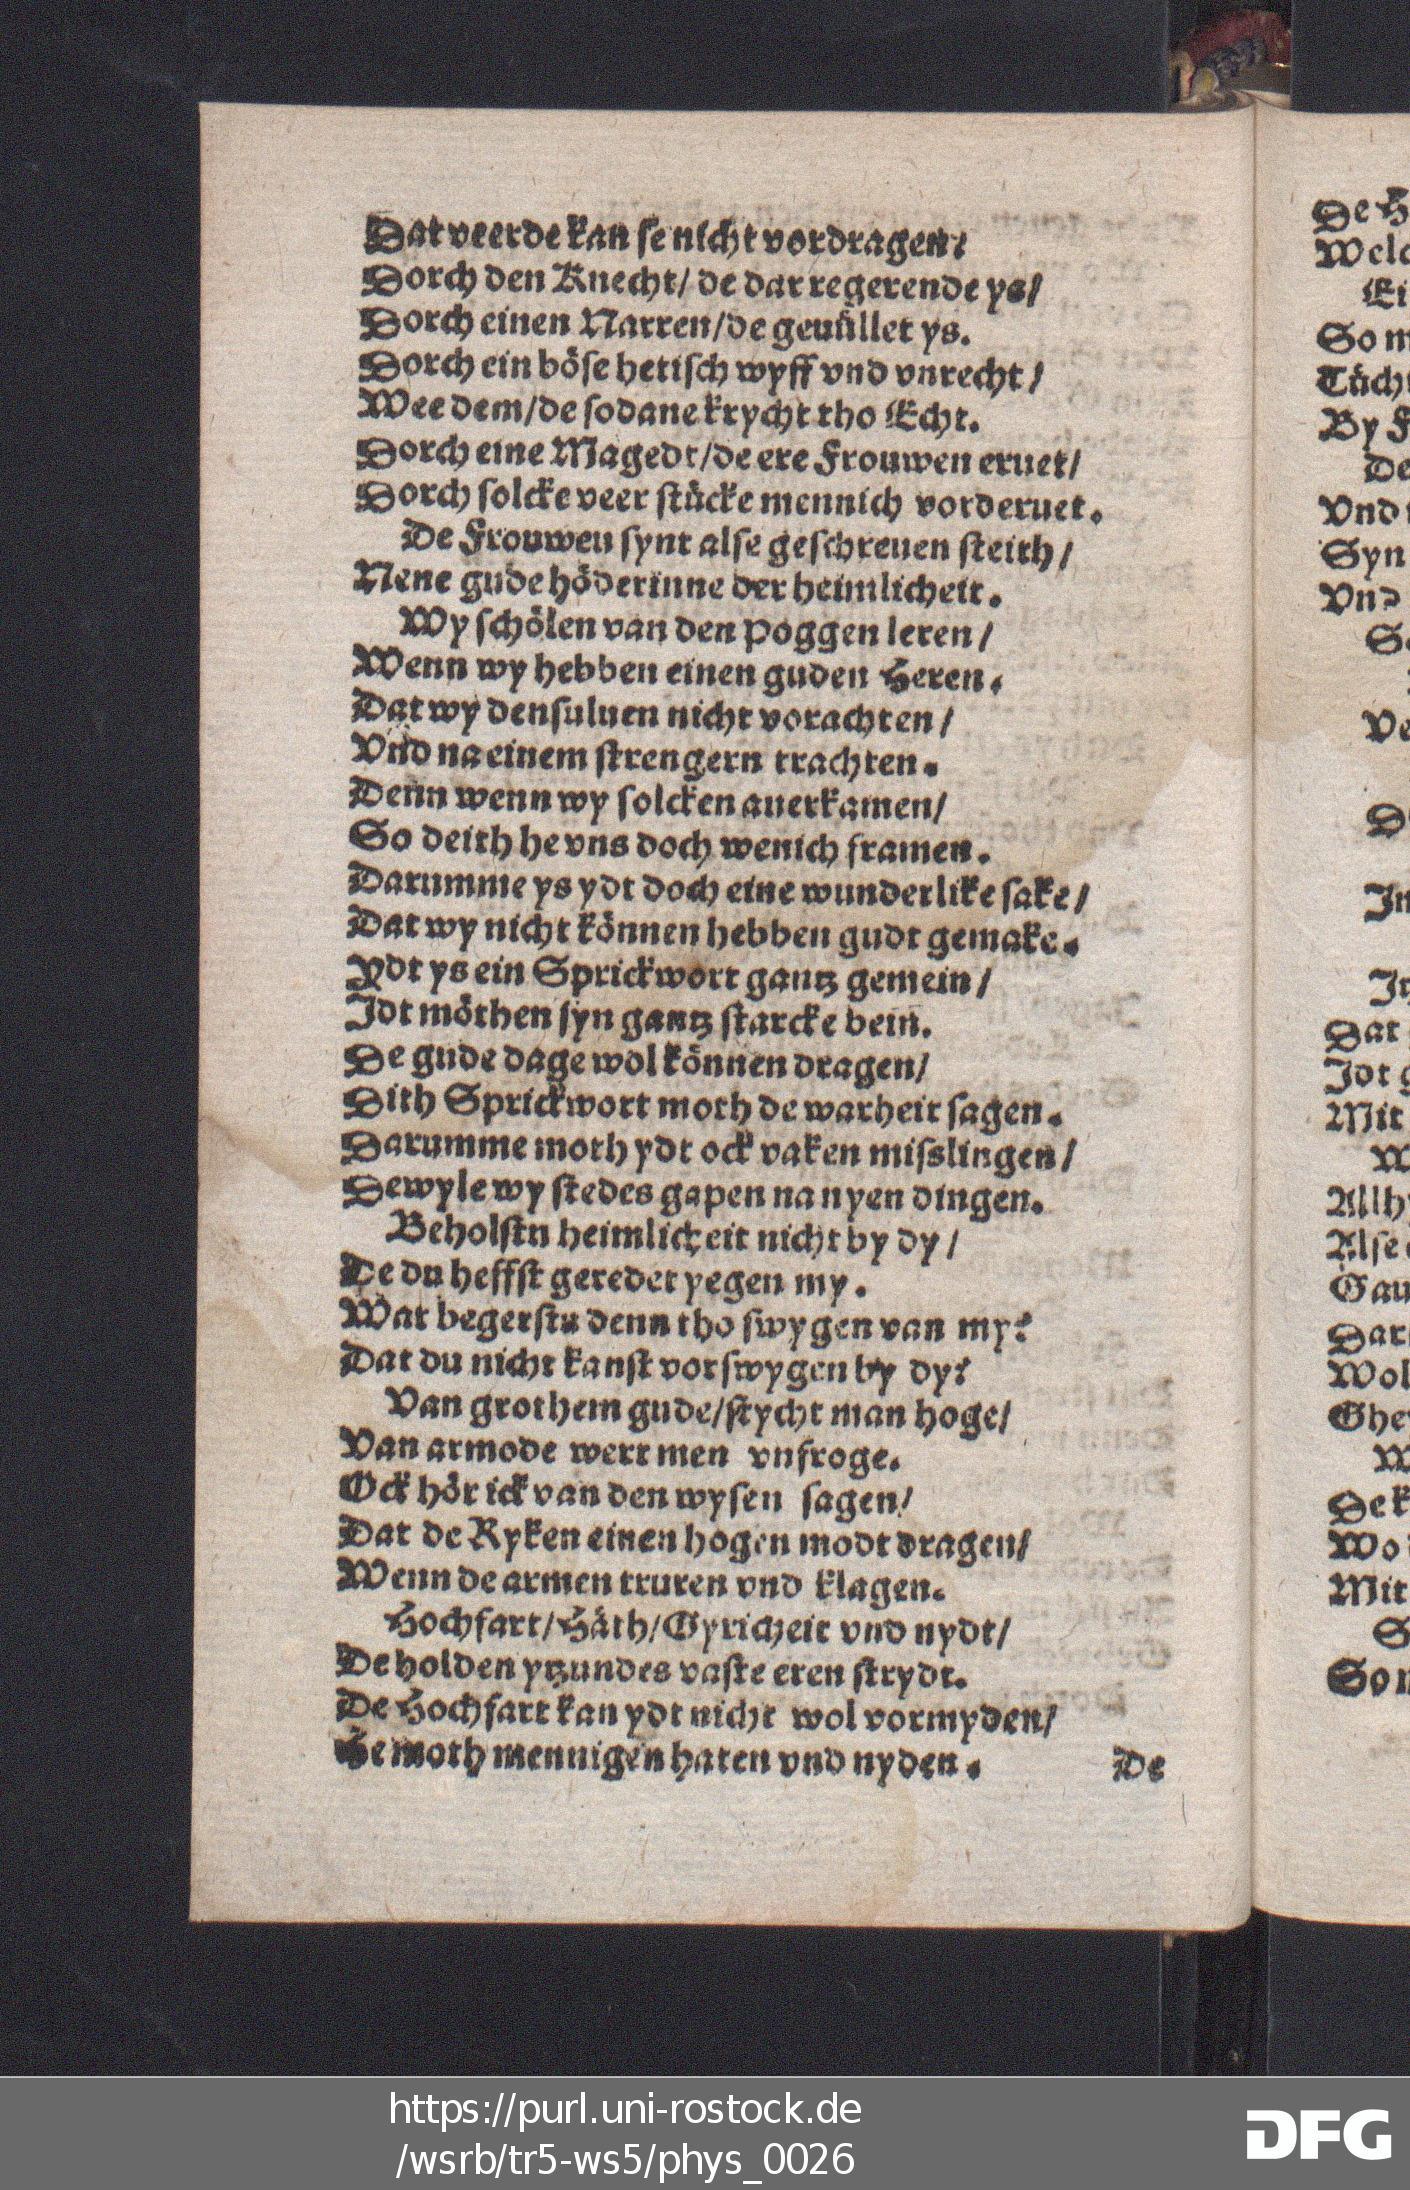 Dat veerde kan se nicht vordragen?
Dorch den Knecht/ de dar regerende ys/
Dorch einen Narren/de geuüllet ys.
Dorch ein böse hetisch wyff vnd vnrecht/
Wee dem/de sodane krycht tho Echt.
Dorch eine Magedt/de ere Frouwen eruet/
Dorch solcke veer stücke mennich vorderuet.
De Frouwen synt alse geschreuen steith/
Nene gude höderinne der heimlicheit.
Wy schölen van den Poggen leren/
Wenn wy hebben einen guden Heren.
Dat wy densuluen nicht vorachten/
Vnd na einem strengern trachten.
Denn wenn wy solcken auerkamen/
So deith he vns doch wenich framen.
Darumme ys ydt doch eine wunderlike sake/
Dat wy nicht können hebben gudt gemake.
Ydt ys ein Sprickwort gantz gemein/
Idt möthen syn gantz starcke bein.
De gude dage wol können dragen/
Dith Sprickwort moth de warheit sagen.
Darumme moth ydt ock vaken misslingen/
Dewyle wy stedes gapen na nyen dingen.
Beholstu heimlicheit nicht by dy/
De du heffst geredet yegen my.
Wat begerstu denn tho swygen van my?
Dat du nicht kanst vorswygen by dy?
Van grothem gude/stycht man hoge/
Van armode wert men vnfroge.
Ock hör ick van den wysen sagen/
Dat de Ryken einen hogen modt dragen/
Wenn de armen truren vnd klagen.
Hochfart/Häth/Gyricheit vnd nydt/
De holden ytzundes vaste eren strydt.
De Hochfart kan ydt nicht wol vormyden/
Se moth mennigen haten vnd nyden.
De
De H
Welc
Ei
So m
Tücht
By F
De
Vnd
Syn
Vnd
Ve
In
Dat
Idt g
Mit
W
Allhy
Alse
Gau
Dar
Wol
Ghe
W
De k
Wo
Mit
S
So
https://purl.uni-rostock.de
/wsrb/tr5-ws5/phys_0026
DFG